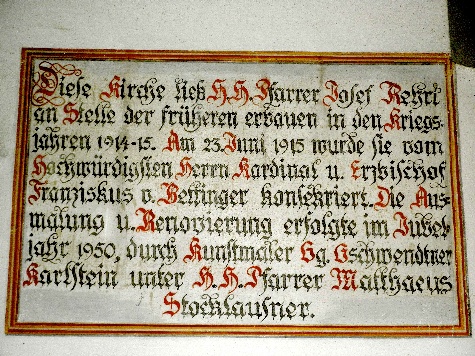 Diese Kirche ließ H.H. Pfarrer Josef Rehrl
an Stelle der früheren erbauen in den Kriegs-
jahren 1914-15. Am 23. Juni 1915 wurde sie vom
Hochwürdigsten Herrn Kardinal u. Erzbischof
Franziskus v. Bettinger konsekriert. Die Aus-
malung u. Renovierung erfolgte im Jubel-
jahr 1950, durch Kunstmaler Gg. Gschwendtner
Karlstein unter H.H. Pfarrer Matthaeus
Stocklausner.